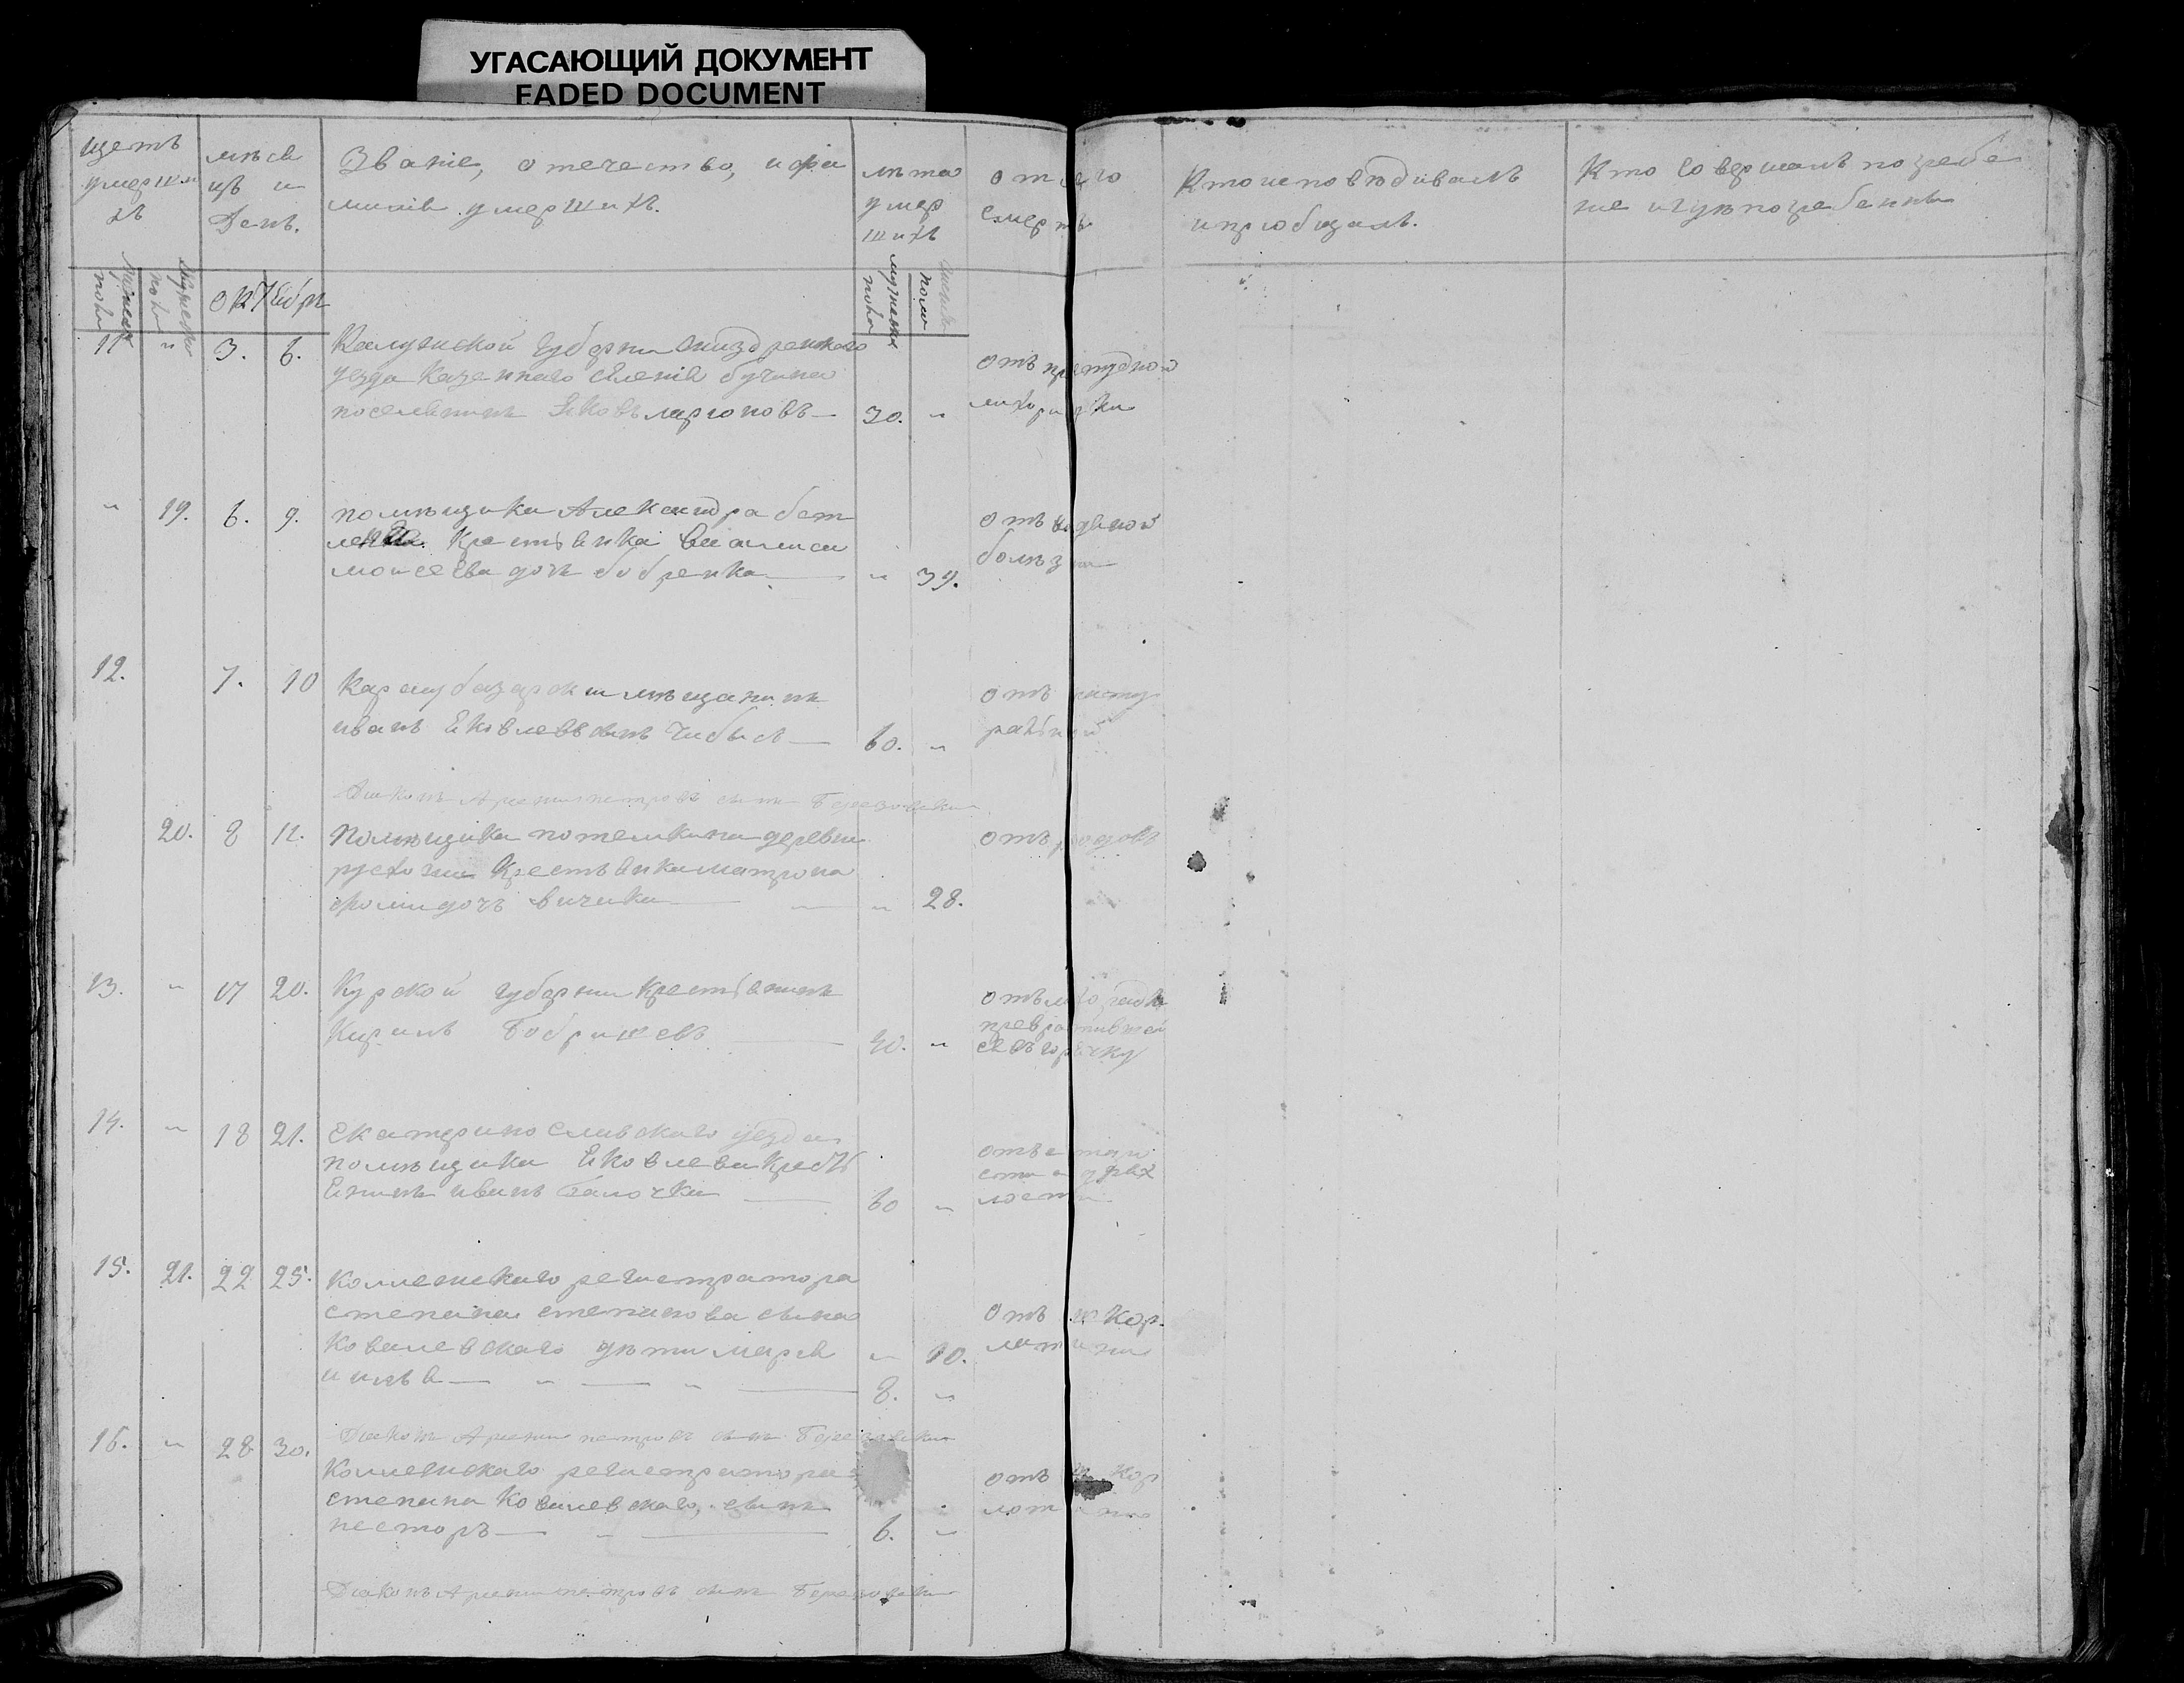 УГАСАЮЩИЙ ДОКУМЕНТ
FADED DOCUMENT
щетъ
умерши
хъ
мѣся
цъ и
День.
Званіе, отечество, и фа
милія умершихъ.
лѣта
умер
шихъ
отчего
смерть
Кто исповѣдивалъ
и приобщалъ.
Кто совершалъ погребе
ніе и гдѣ погребенны
мужеска
пола
женска
пола
октября
мужеска
пола
женска
пола
11 " 3. 6. Калужской губерни жиздренскаго
уезда Казеннаго селенія бучина
поселянинъ Яковъ ларіоновъ — 30. "
отъ простудной
лихорадки
" 19. 6. 9. помѣщика Александра
Крестьянка
моисеева дочь бобренка — " 39.
отъ водяной
болѣзни
12. 7. 10 Карасубазарски мѣщанинъ
иванъ Яковлевъ сынъ Чибысъ — 60. "
отъ
Диаконъ Арсени петровъ сынъ Березовски
20. 8 11. Помѣщика потемкина деревни
Крестьянка матрона
фоми дочь — " 28.
отъ родовъ
13. " 17 20. Курской губернии крестьянинъ
Кирилъ Бобришевъ — 30. "
отъ лихорадки
превратившей
ся въ горячку
14. " 18 21. Екатеринославскаго уезда
помѣщика Яковлева крест
янинъ иванъ Балочка — 60 "
отъ стари
сти и дрях
лости
15. 21. 22 25. Коллежскаго регистратора
степана степанова сына
Ковалевскаго дѣти марія " 10.
и илья — " — " — 8. "
отъ
16. " 28 30. Диаконъ Арсени петровъ сынъ Березовски
Коллежскаго регистратора
степана Ковалевскаго, сынъ
несторъ — " — 6. "
отъ
Диаконъ Арсени петровъ сынъ Березовски